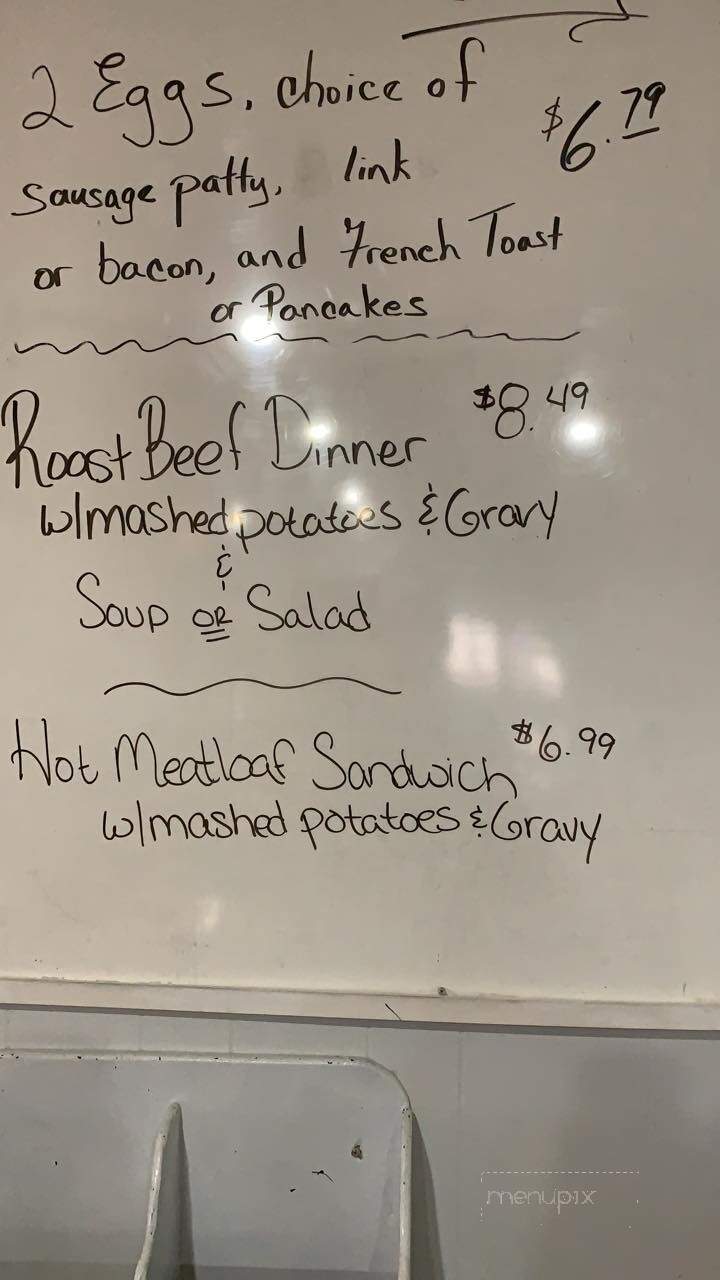 2 Eggs, choice of
$6.79
sausage patty, link
or bacon, and French Toast
or Pancakes
Roast Beef Dinner $8.49
w/mashed potatoes & Gravy
&
Soup OR Salad
Hot Meatloaf Sandwich $6.99
w/mashed potatoes & Gravy
menupix